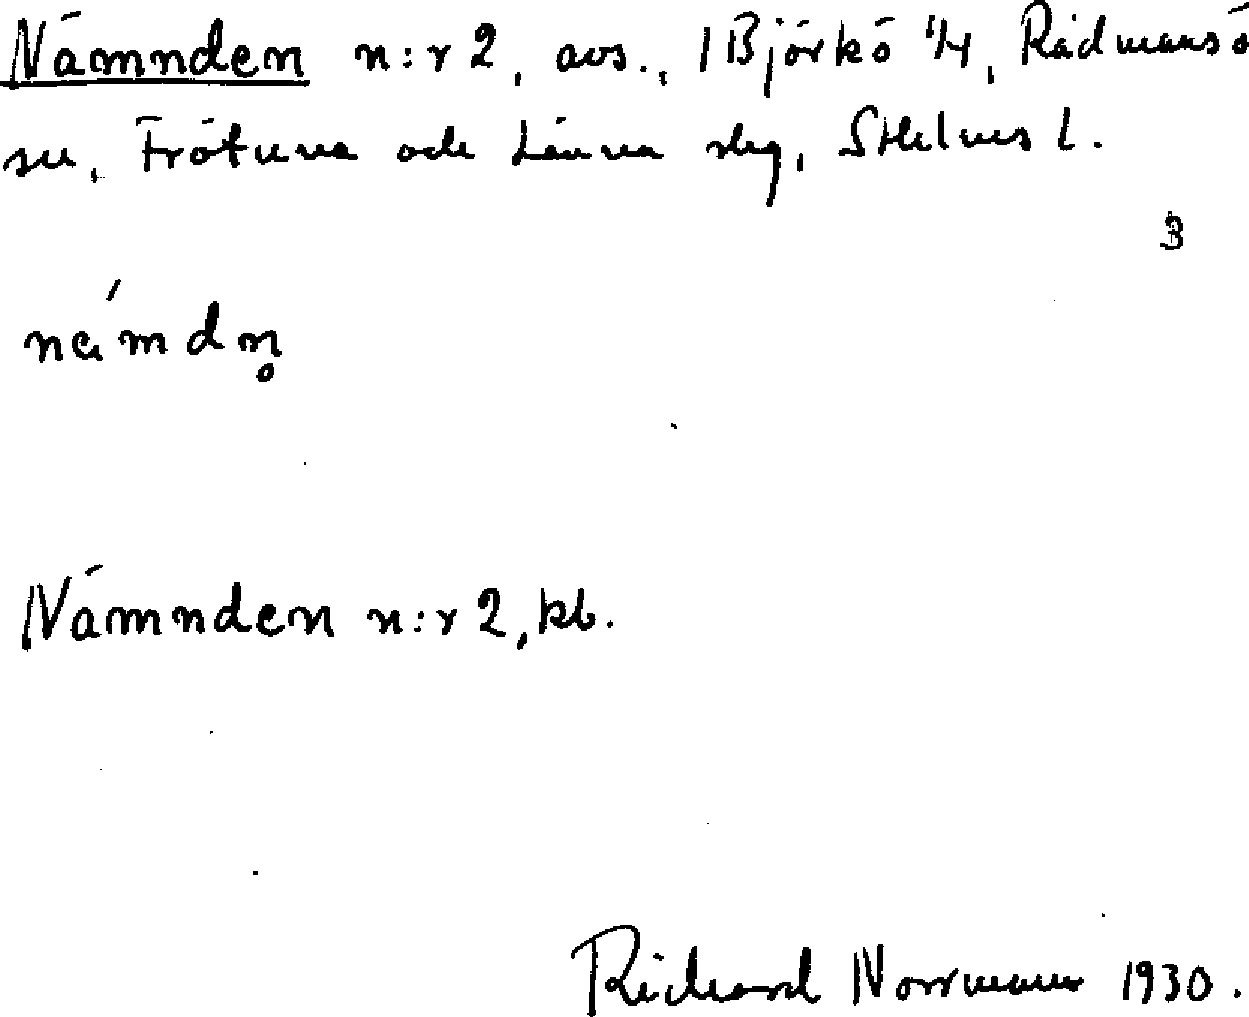 Nämnden n:r 2, avs., 1 Björkö 1/4, Rådmansö
sn, Frötuna och Länna slg, Sthlms l.
3
nä́mdn̥
Nämnden n:r 2, kb.
Richard Norrman 1930.